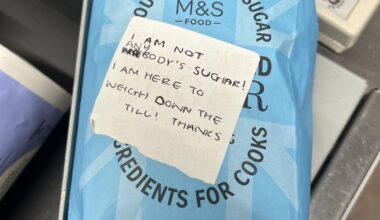 M&S
FOOD
SUGAR
I AM NOT
ANYBODY'S SUGAR!
I AM HERE TO
WEIGH DOWN THE
TILL! THANKS
INGREDIENTS FOR COOKS